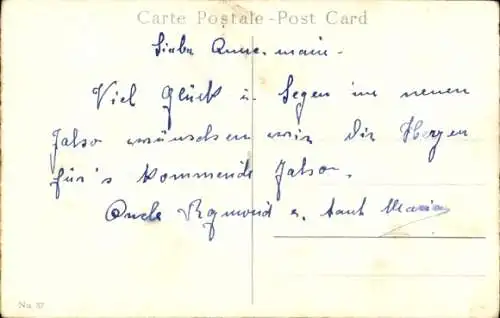 Carte Postale - Post Card
Liebe Anne-marie -
Viel Glück u. Segen im neuen
Jahre wünschen wir Dir Herzen
für's kommende Jahre.
Oncle u. tant Marie
No. 37